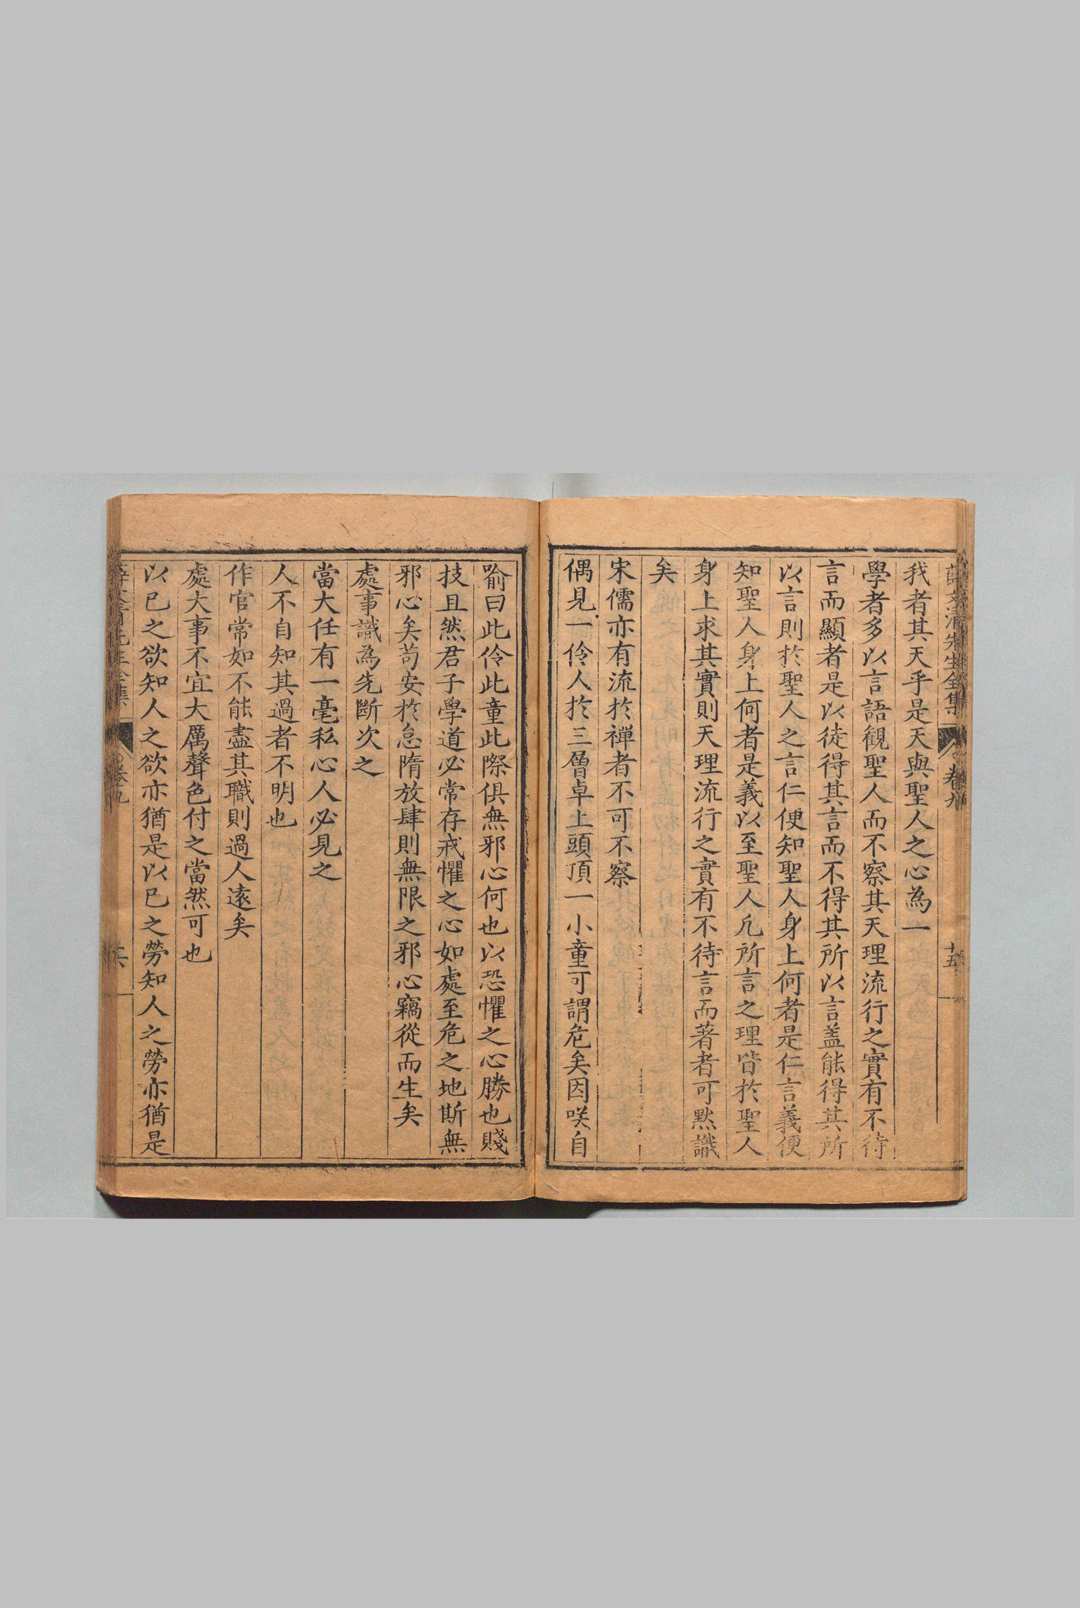 薛文清先生全集 卷九 十五
我者其天乎是天與聖人之心為一
學者多以言語觀聖人而不察其天理流行之實有不待
言而顯者是以徒得其言而不得其所以言盖能得其所
以言則於聖人之言仁便知聖人身上何者是仁言義便
知聖人身上何者是義以至聖人凡所言之理皆於聖人
身上求其實則天理流行之實有不待言而著者可黙識
矣
宋儒亦有流於禅者不可不察
偶見一伶人於三層卓上頭頂一小童可謂危矣因咲自
喻曰此伶此童此際俱無邪心何也以恐懼之心勝也賤
技且然君子學道必常存戒懼之心如處至危之地斯無
邪心矣苟安於怠隋放肆則無限之邪心竊從而生矣
處事識為先斷次之
當大任有一毫私心人必見之
人不自知其過者不明也
作官常如不能盡其職則過人遠矣
處大事不宜大厲聲色付之當然可也
以已之欲知人之欲亦猶是以已之勞知人之勞亦猶是
薛文清先生全集 卷九 六